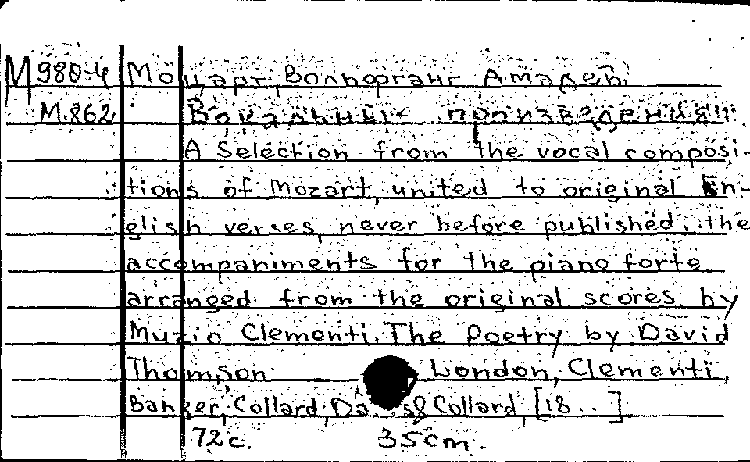 М 980-4 Моцарт, Вольфганг Амадей.
М.862 Вокальные произведения.
A Selection from the vocal composi-
tions of Mozart, united to original En-
glish verses, never before published, the
accompaniments for the piano forte
arranged from the original scores by
Muzio Clementi. The Poetry by David
Thomson London, Clementi,
Banger, Collard, Da & Collard, [18..]
72с. 35cm.